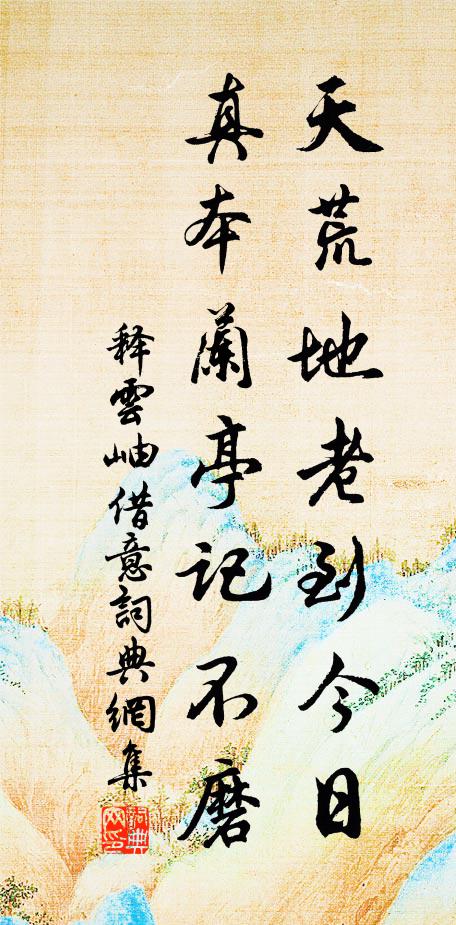 天荒地老到今日
真本蘭亭記不磨
释雲岫借意詞典網集
詞典
网印